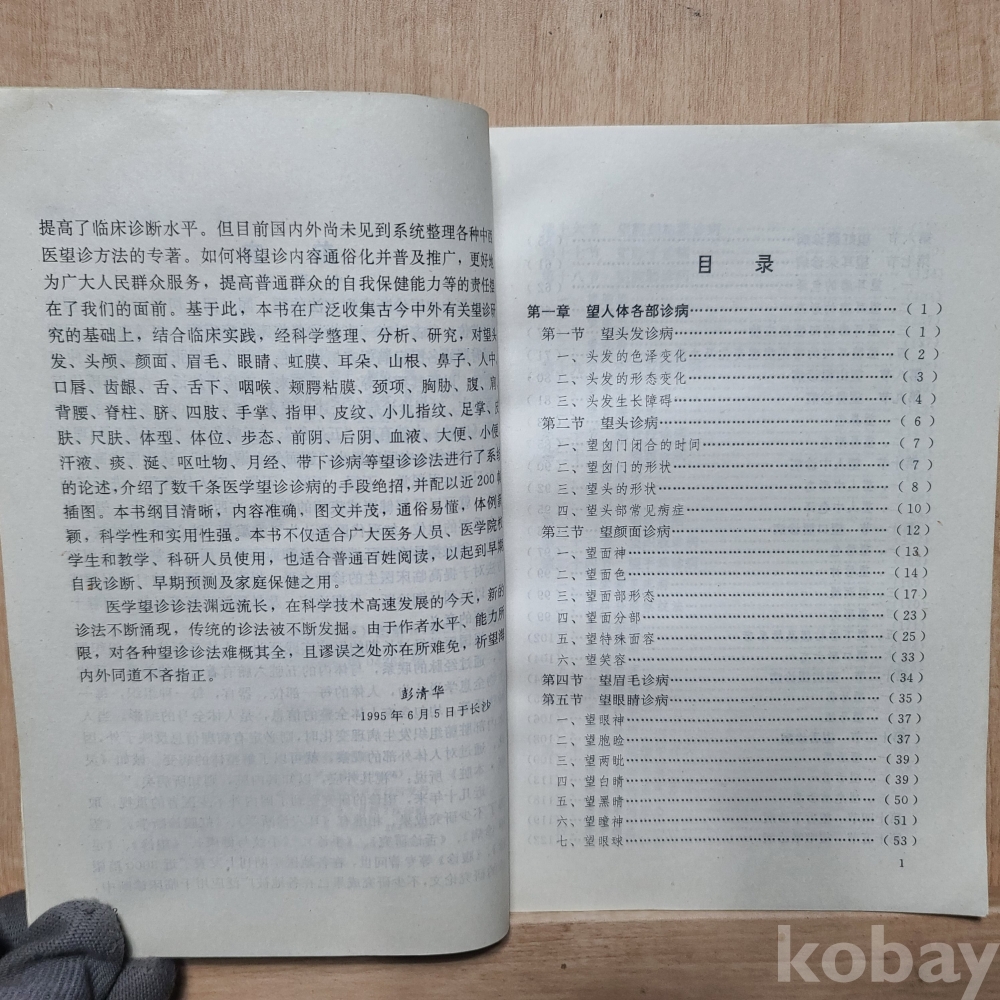 提高了临床诊断水平。但目前国内外尚未见到系统整理各种中西
医望诊方法的专著。如何将望诊内容通俗化并普及推广，更好地
为广大人民群众服务，提高普通群众的自我保健能力等的责任
在了我们的面前。基于此，本书在广泛收集古今中外有关望诊研
究的基础上，结合临床实践，经科学整理、分析、研究，对望头
发、头颅、颜面、眉毛、眼睛、虹膜、耳朵、山根、鼻子、人中、
口唇、齿龈、舌、舌下、咽喉、颊腭粘膜、颈项、胸胁、腹、肩
背腰、脊柱、脐、四肢、手掌、指甲、皮纹、小儿指纹、足掌、皮
肤、尺肤、体型、体位、步态、前阴、后阴、血液、大便、小便、
汗液、痰、涎、呕吐物、月经、带下诊病等望诊诊法进行了系统
的论述，介绍了数千条医学望诊诊病的手段绝招，并配以近200
插图。本书纲目清晰，内容准确，图文并茂，通俗易懂，体例新
颖，科学性和实用性强。本书不仅适合广大医务人员、医学院校
学生和教学、科研人员使用，也适合普通百姓阅读，以起到早期
自我诊断、早期预测及家庭保健之用。
医学望诊诊法渊远流长，在科学技术高速发展的今天，新的
诊法不断涌现，传统的诊法被不断发掘。由于作者水平、能力所
限，对各种望诊诊法难概其全，且谬误之处亦在所难免，祈望海
内外同道不吝指正。
彭清华
1995年6月5日于长沙
目 录
第一章 望人体各部诊病……（1）
第一节 望头发诊病……（1）
一、头发的色泽变化……（2）
二、头发的形态变化……（3）
三、头发生长障碍……（4）
第二节 望头诊病……（6）
一、望囟门闭合的时间……（7）
二、望囟门的形状……（7）
三、望头的形状……（8）
四、望头部常见病症……（10）
第三节 望颜面诊病……（12）
一、望面神……（13）
二、望面色……（14）
三、望面部形态……（17）
四、望面分部……（23）
五、望特殊面容……（25）
六、望笑容……（33）
第四节 望眉毛诊病……（34）
第五节 望眼睛诊病……（35）
一、望眼神……（37）
二、望胞睑……（37）
三、望两眦……（39）
四、望白睛……（39）
五、望黑睛……（50）
六、望瞳神……（51）
七、望眼球……（53）
1
kobay